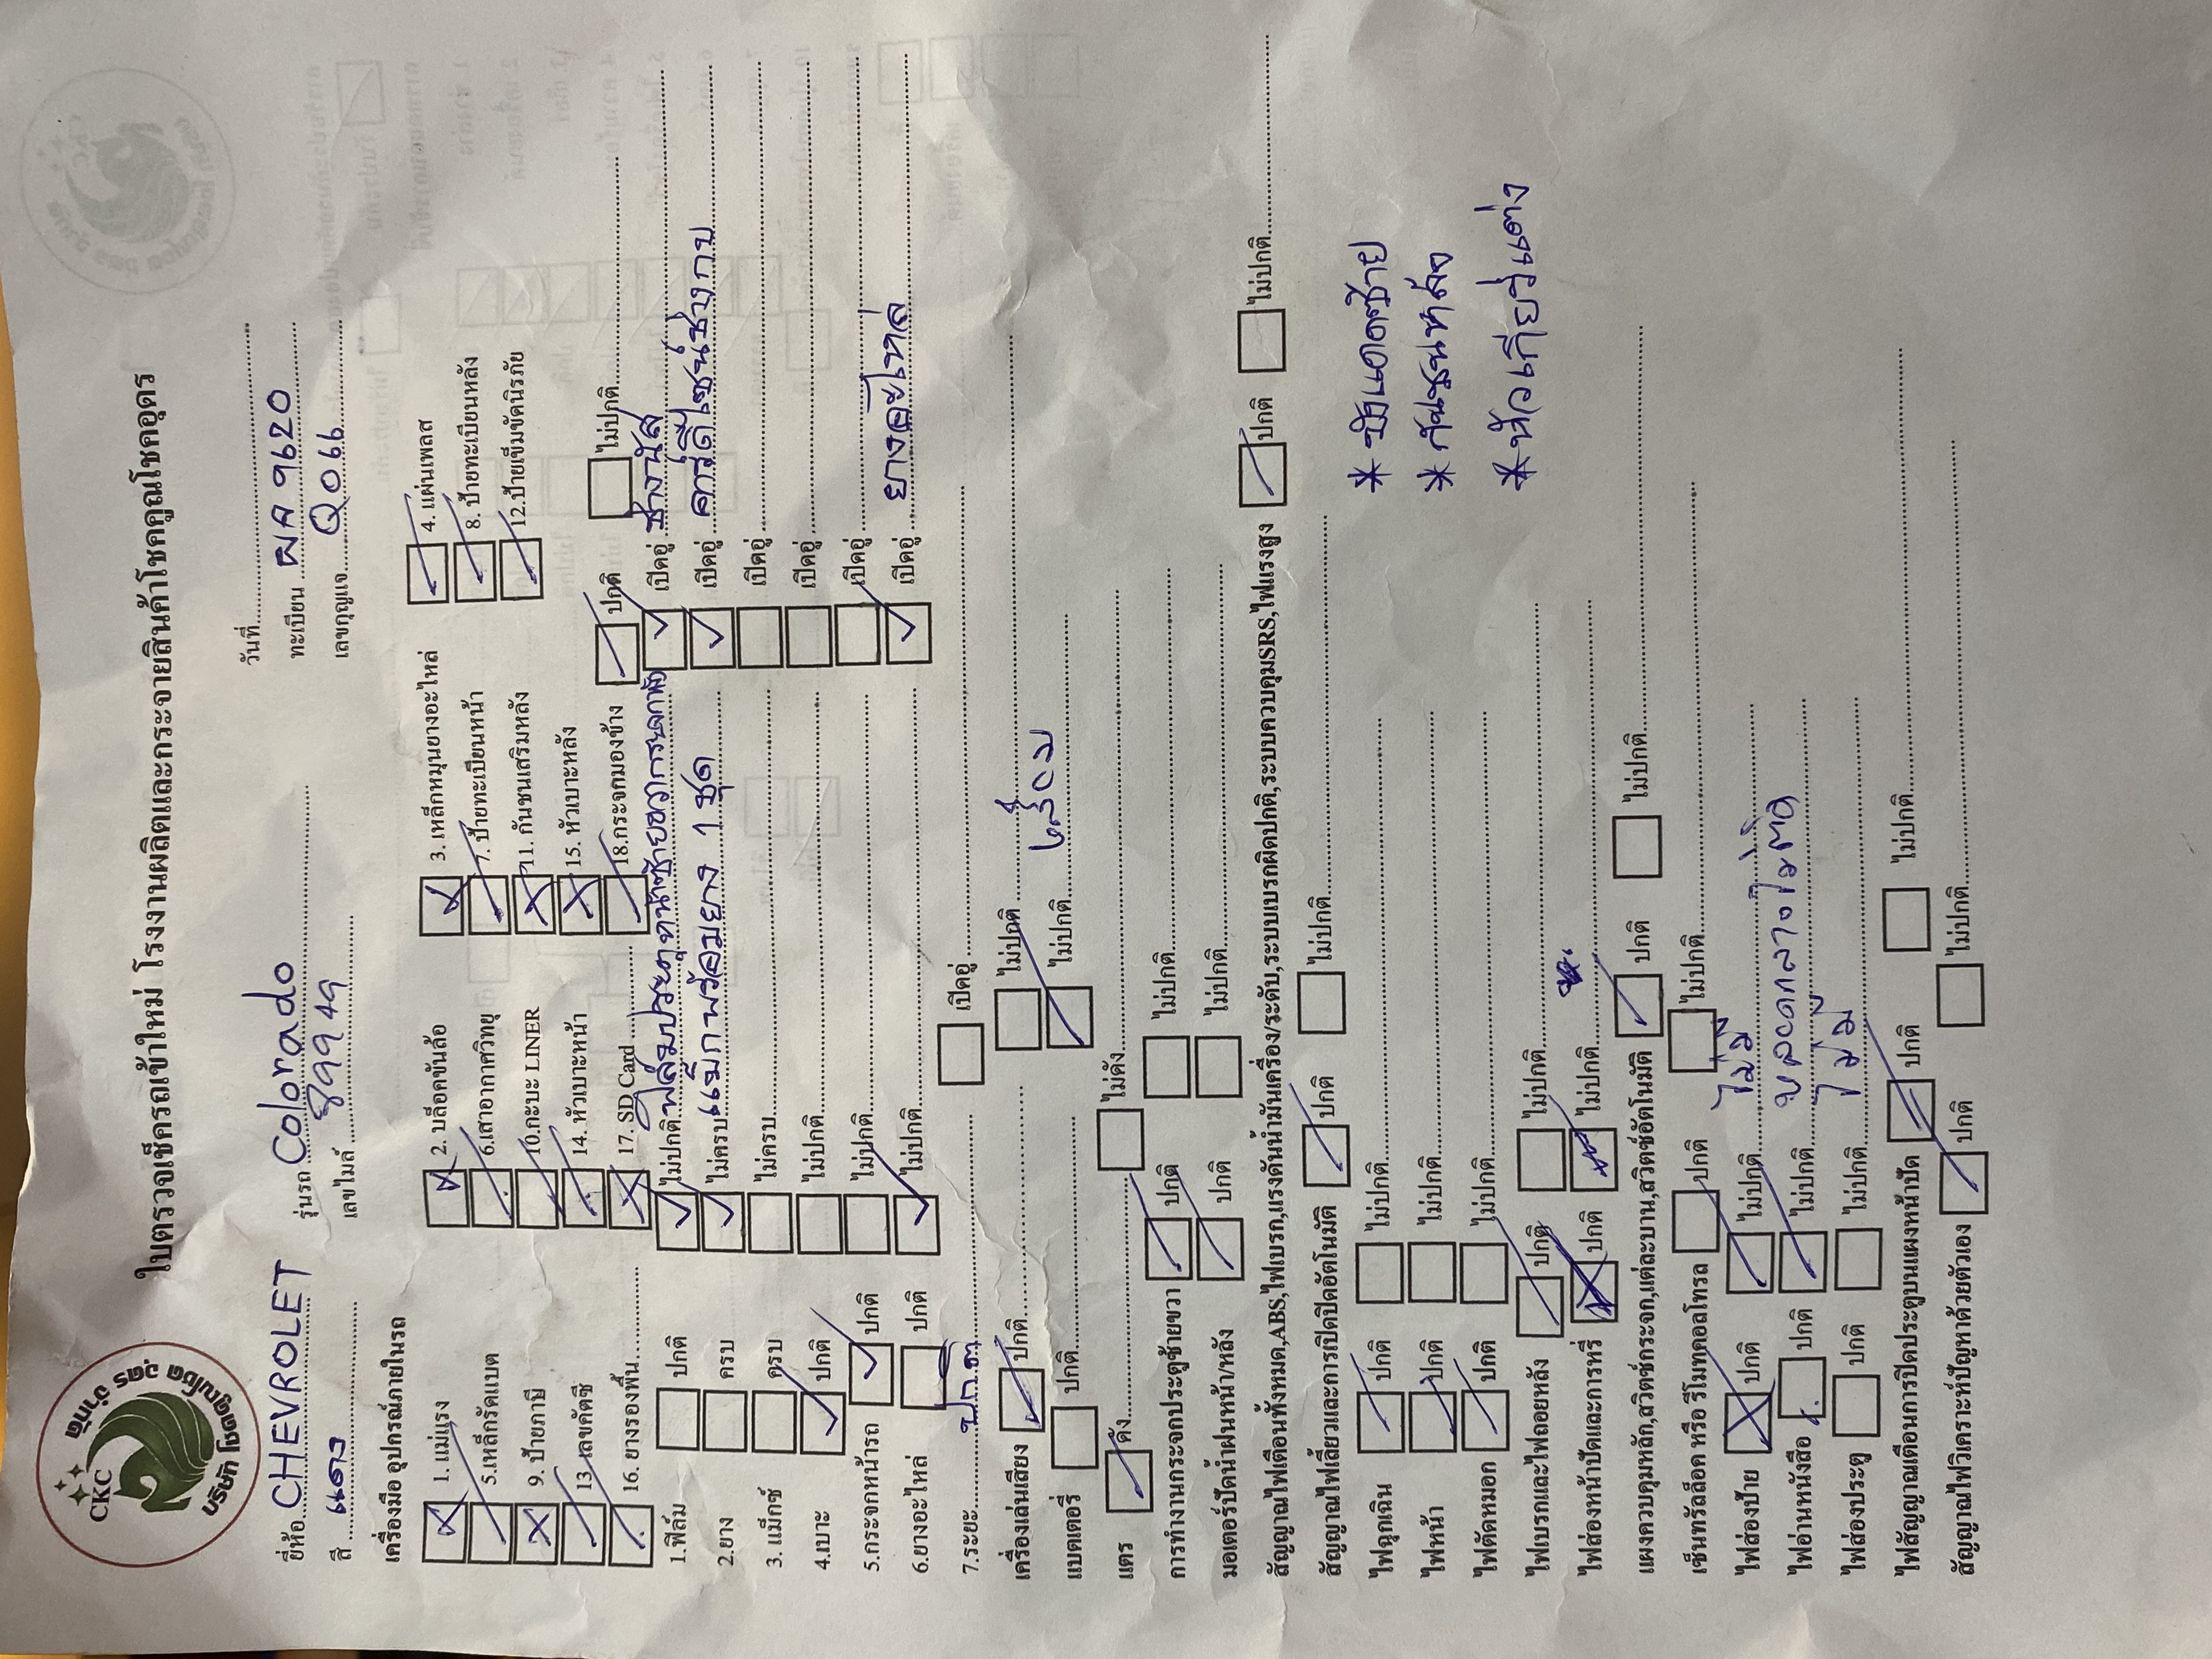 ใบตรวจเช็ครถเข้าใหม่ โรงงานผลิตและกระจายสินค้าโชคคูณโชคอุดร
CKC
บริษัท โชคคูณโชค อุดร จำกัด
วันที่
ยี่ห้อ CHEVROLET รุ่นรถ Colorado ทะเบียน ผล 9620
สี แดง เลขไมล์ 899949 เลขกุญแจ Q066
เครื่องมือ อุปกรณ์ภายในรถ
1. แม่แรง 2. บล็อคขันล้อ 3. เหล็กหมุนยางอะไหล่ 4. แผ่นเพลส
5.เหล็กรัดแบต 6.เสาอากาศวิทยุ 7. ป้ายทะเบียนหน้า 8. ป้ายทะเบียนหลัง
9. ป้ายภาษี 10.กะบะ LINER 11. กันชนเสริมหลัง 12.ป้ายเข็มขัดนิรภัย
13 เลขคัตซี 14. หัวเบาะหน้า 15. หัวเบาะหลัง
16. ยางรองพื้น 17. SD Card 18.กระจกมองข้าง ปกติ ไม่ปกติ
1.ฟิล์ม ปกติ ไม่ปกติ ฟิล์มประตูหน้าซ้ายขวา เปิดอู่ ช่างนัส
2.ยาง ครบ ไม่ครบ แม็กพร้อมยาง 1 ชุด เปิดอู่ คาร์ดีไซน์ช่างกบ
3. แม็กซ์ ครบ ไม่ครบ เปิดอู่
4.เบาะ ปกติ ไม่ปกติ เปิดอู่
5.กระจกหน้ารถ ปกติ ไม่ปกติ เปิดอู่
6.ยางอะไหล่ ปกติ ไม่ปกติ เปิดอู่ ยางอะไหล่
7.ระยะ เปิดอู่
เครื่องเล่นเสียง ปกติ ไม่ปกติ
แบตเตอรี่ ปกติ ไม่ปกติ เสื่อม
แตร ดัง ไม่ดัง
การทำงานกระจกประตูซ้ายขวา ปกติ ไม่ปกติ
มอเตอร์ปัดน้ำฝนหน้า/หลัง ปกติ ไม่ปกติ
สัญญาณไฟเตือนทั้งหมด,ABS,ไฟเบรก,แรงดันน้ำมันเครื่อง/ระดับ,ระบบเบรกผิดปกติ,ระบบควบคุมSRS,ไฟแรงสูง ปกติ ไม่ปกติ
สัญญาณไฟเลี้ยวและการเปิดปิดอัตโนมัติ ปกติ ไม่ปกติ
ไฟฉุกเฉิน ปกติ ไม่ปกติ
* บังแดดซ้าย
ไฟหน้า ปกติ ไม่ปกติ
* กันชนหลัง
ไฟตัดหมอก ปกติ ไม่ปกติ
* หัวเกียร์แต่ง
ไฟเบรกและไฟถอยหลัง ปกติ ไม่ปกติ
ไฟส่องหน้าปัดและการหรี่ ปกติ ไม่ปกติ
แผงควบคุมหลัก,สวิตช์กระจก,แต่ละบาน,สวิตช์อัตโนมัติ ปกติ ไม่ปกติ
เซ็นทรัลล็อค หรือ รีโมทคอลโทรล ปกติ ไม่ปกติ
ไฟส่องป้าย ปกติ ไม่ปกติ ไม่มี
ไฟอ่านหนังสือ ปกติ ไม่ปกติ หลอดกลางไม่ติด
ไฟส่องประตู ปกติ ไม่ปกติ ไม่มี
ไฟสัญญาณเตือนการปิดประตูบนแผงหน้าปัด ปกติ ไม่ปกติ
สัญญาณไฟวิเคราะห์ปัญหาด้วยตัวเอง ปกติ ไม่ปกติ